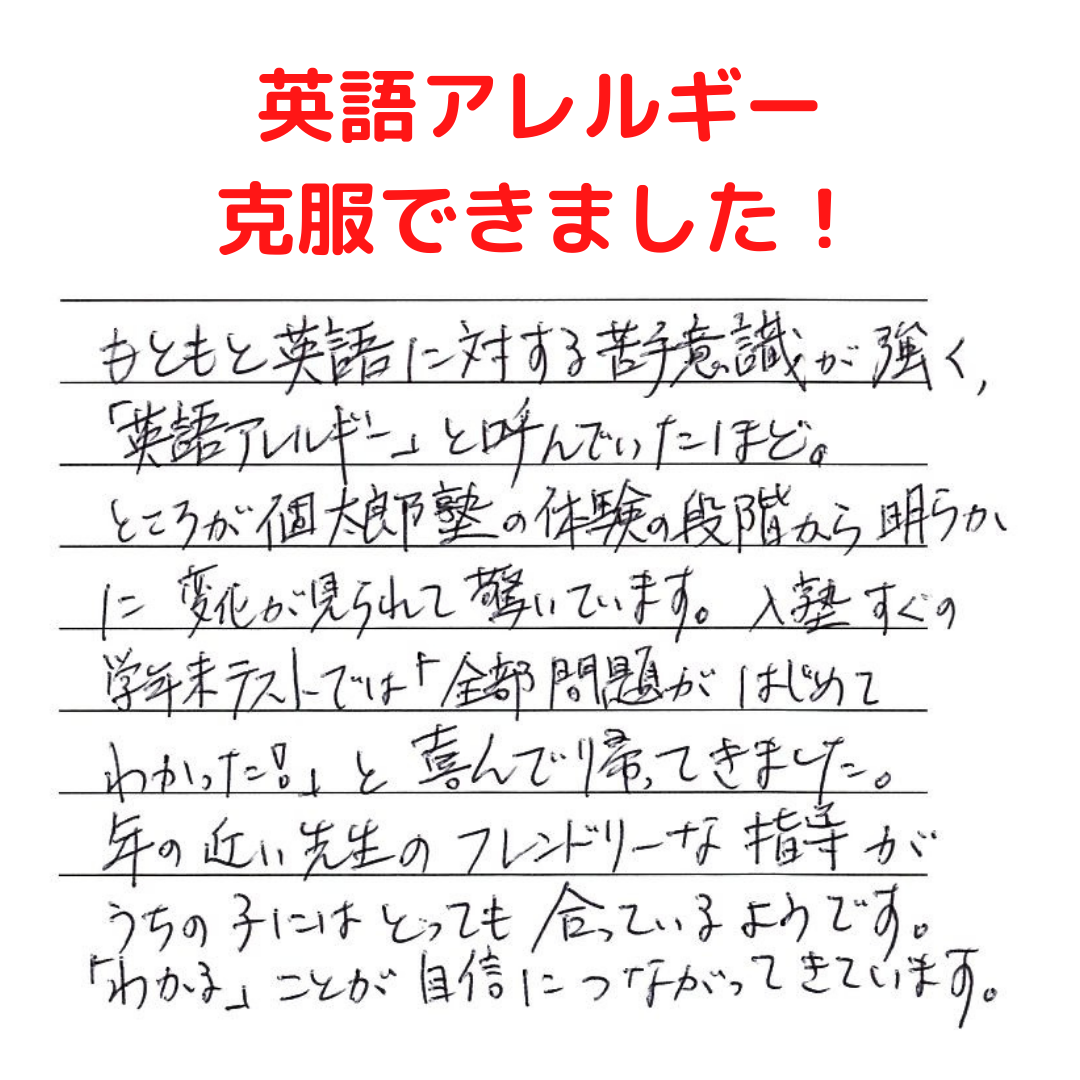 英語アレルギー
克服できました！
もともと英語に対する苦手意識が強く,
「英語アレルギー」と呼んでいたほど。
ところが個太郎塾の体験の段階から明らか
に変化が見られて驚いています。入塾すぐの
学年末テストでは「全部問題がはじめて
わかった!」と喜んで帰ってきました。
年の近い先生のフレンドリーな指導が
うちの子にはとっても合っているようです。
「わかる」ことが自信につながってきています。